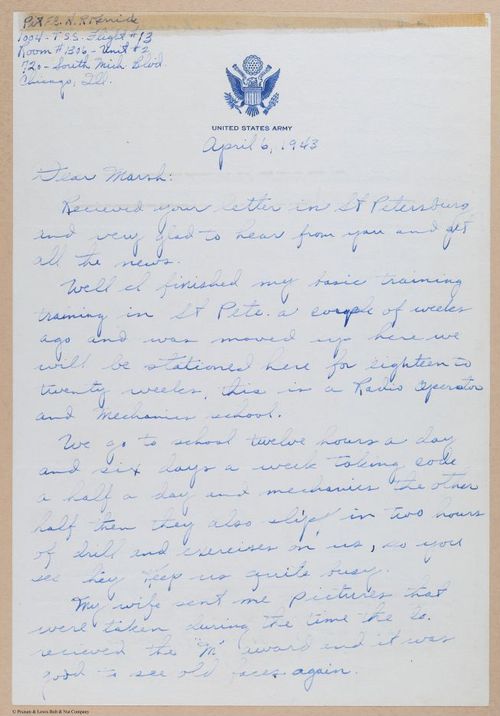 Pvt F.S. A. R. McBride
1004 - T.S.S. Flight #13
Room #1306 - Unit #2
720 - South Mich. Blvd.
Chicago, Ill.
UNITED STATES ARMY
April 6, 1943
Dear Marsh:
Recieved your letter in St Petersburg
and very glad to hear from you and get
all the news.
Well I finished my basic training
training in St Pete. a couple of weeks
ago and was moved up here we
will be stationed here for eighteen to
twenty weeks, this is a Radio Operator
and Mechanics school.
We go to school twelve hours a day
and six days a week taking code
a half a day and mechanics the other
half then they also slip in two hours
of drill and exercises on us, so you
see they keep us quite busy.
My wife sent me pictures that
were taken during the time the Co.
recieved the "M" award and it was
good to see old faces again.
© Pruzan & Lewis Bolt & Nut Company